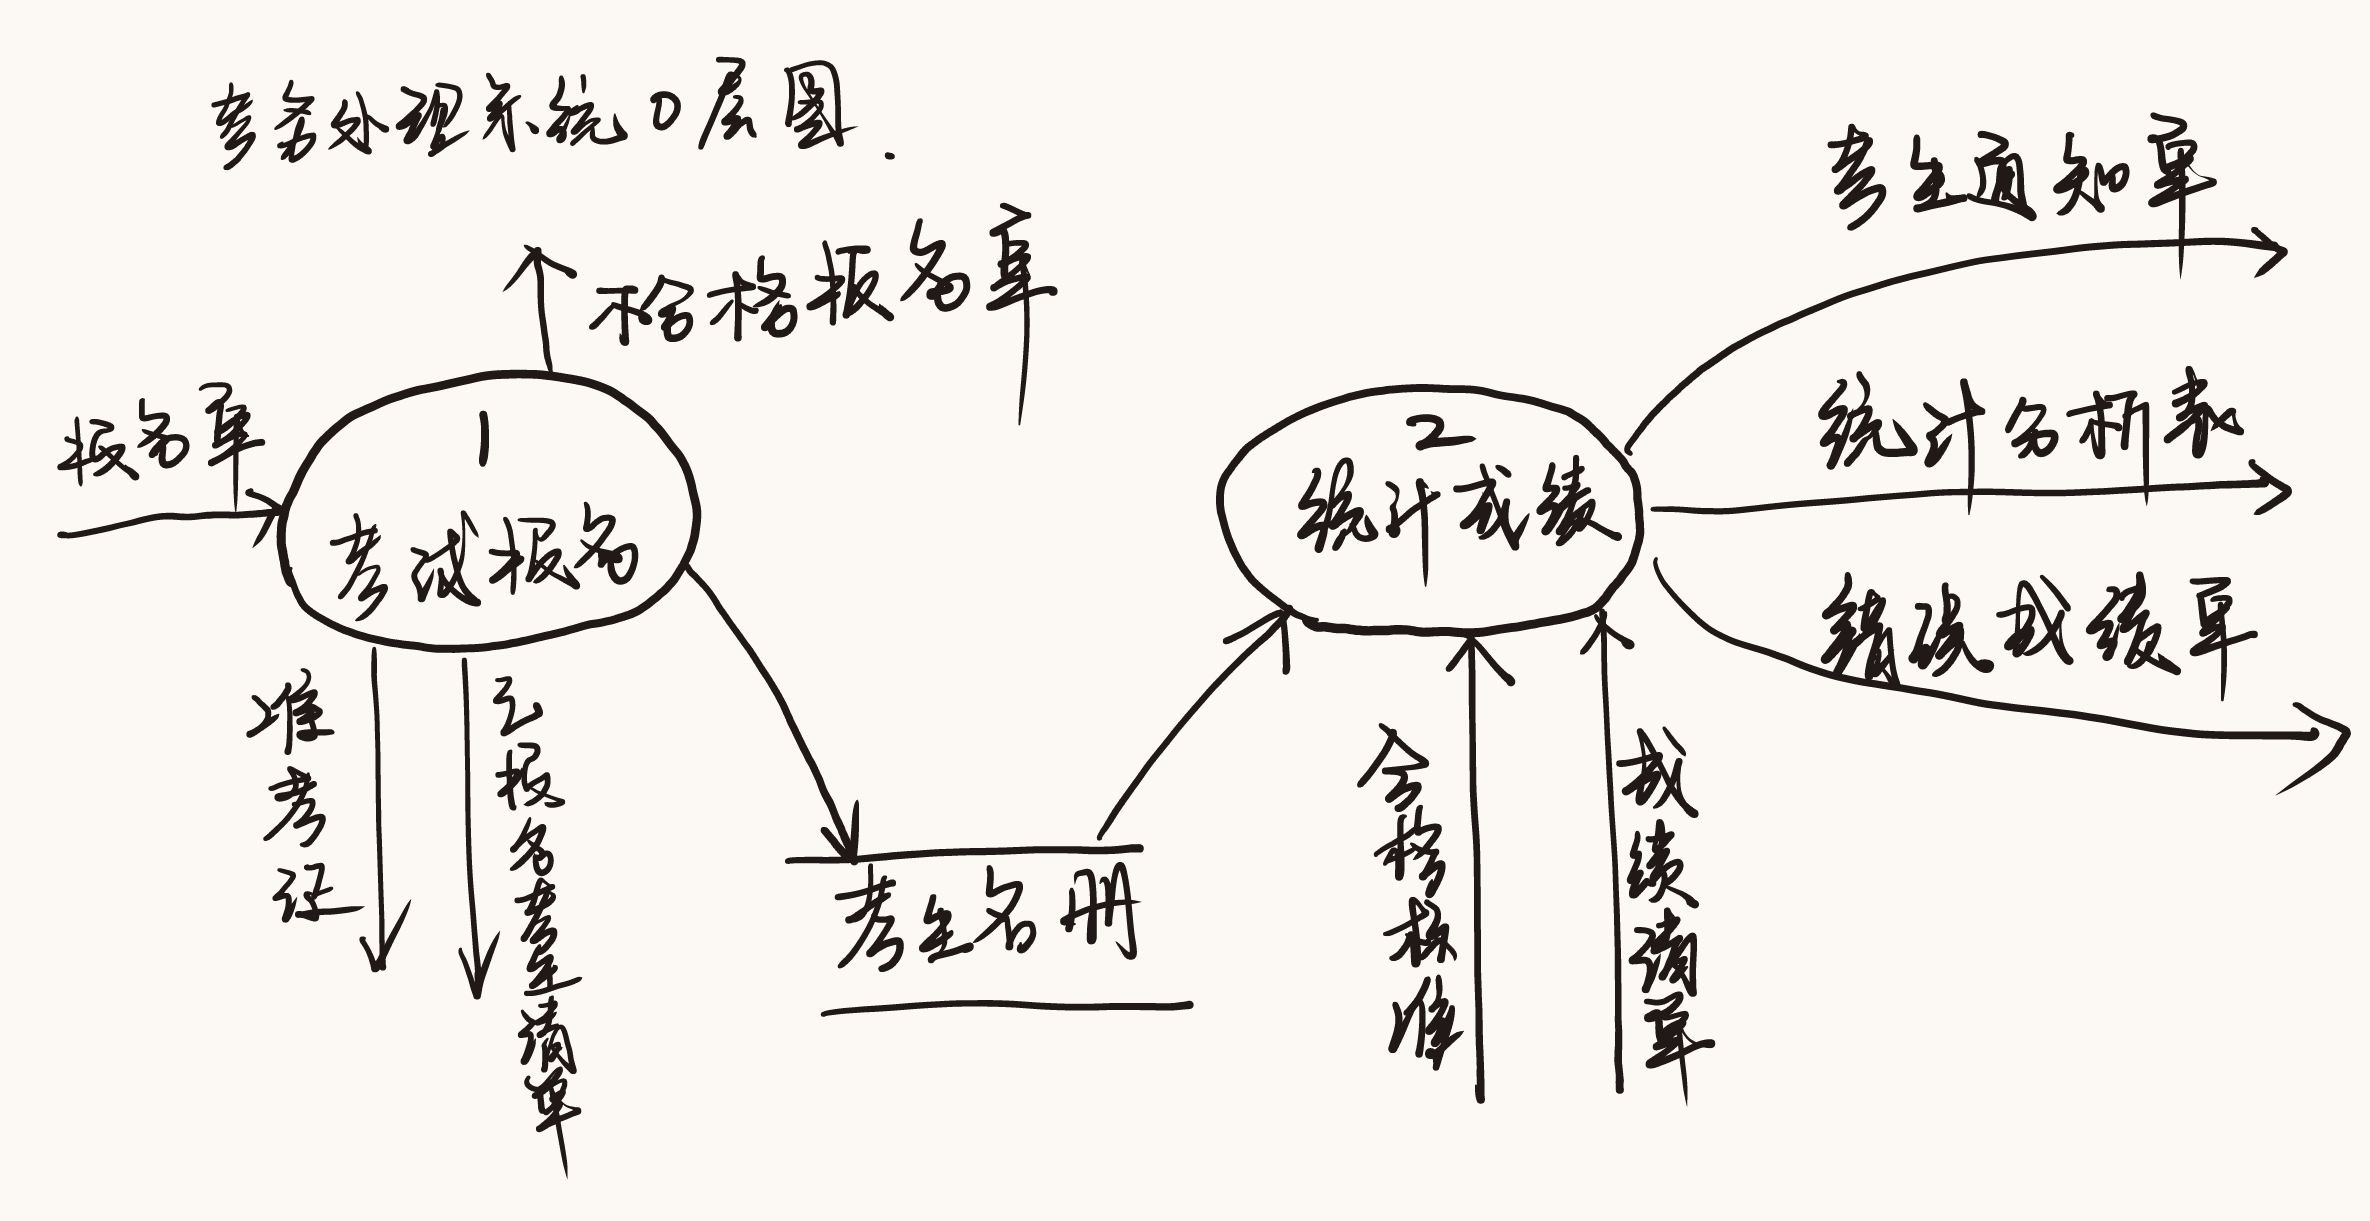 考务处理系统0层图.
不合格报名单
报名单
1
考试报名
准考证
已报名考生清单
考生名册
2
统计成绩
合格标准
成绩清单
考生通知单
统计分析表
错误成绩单